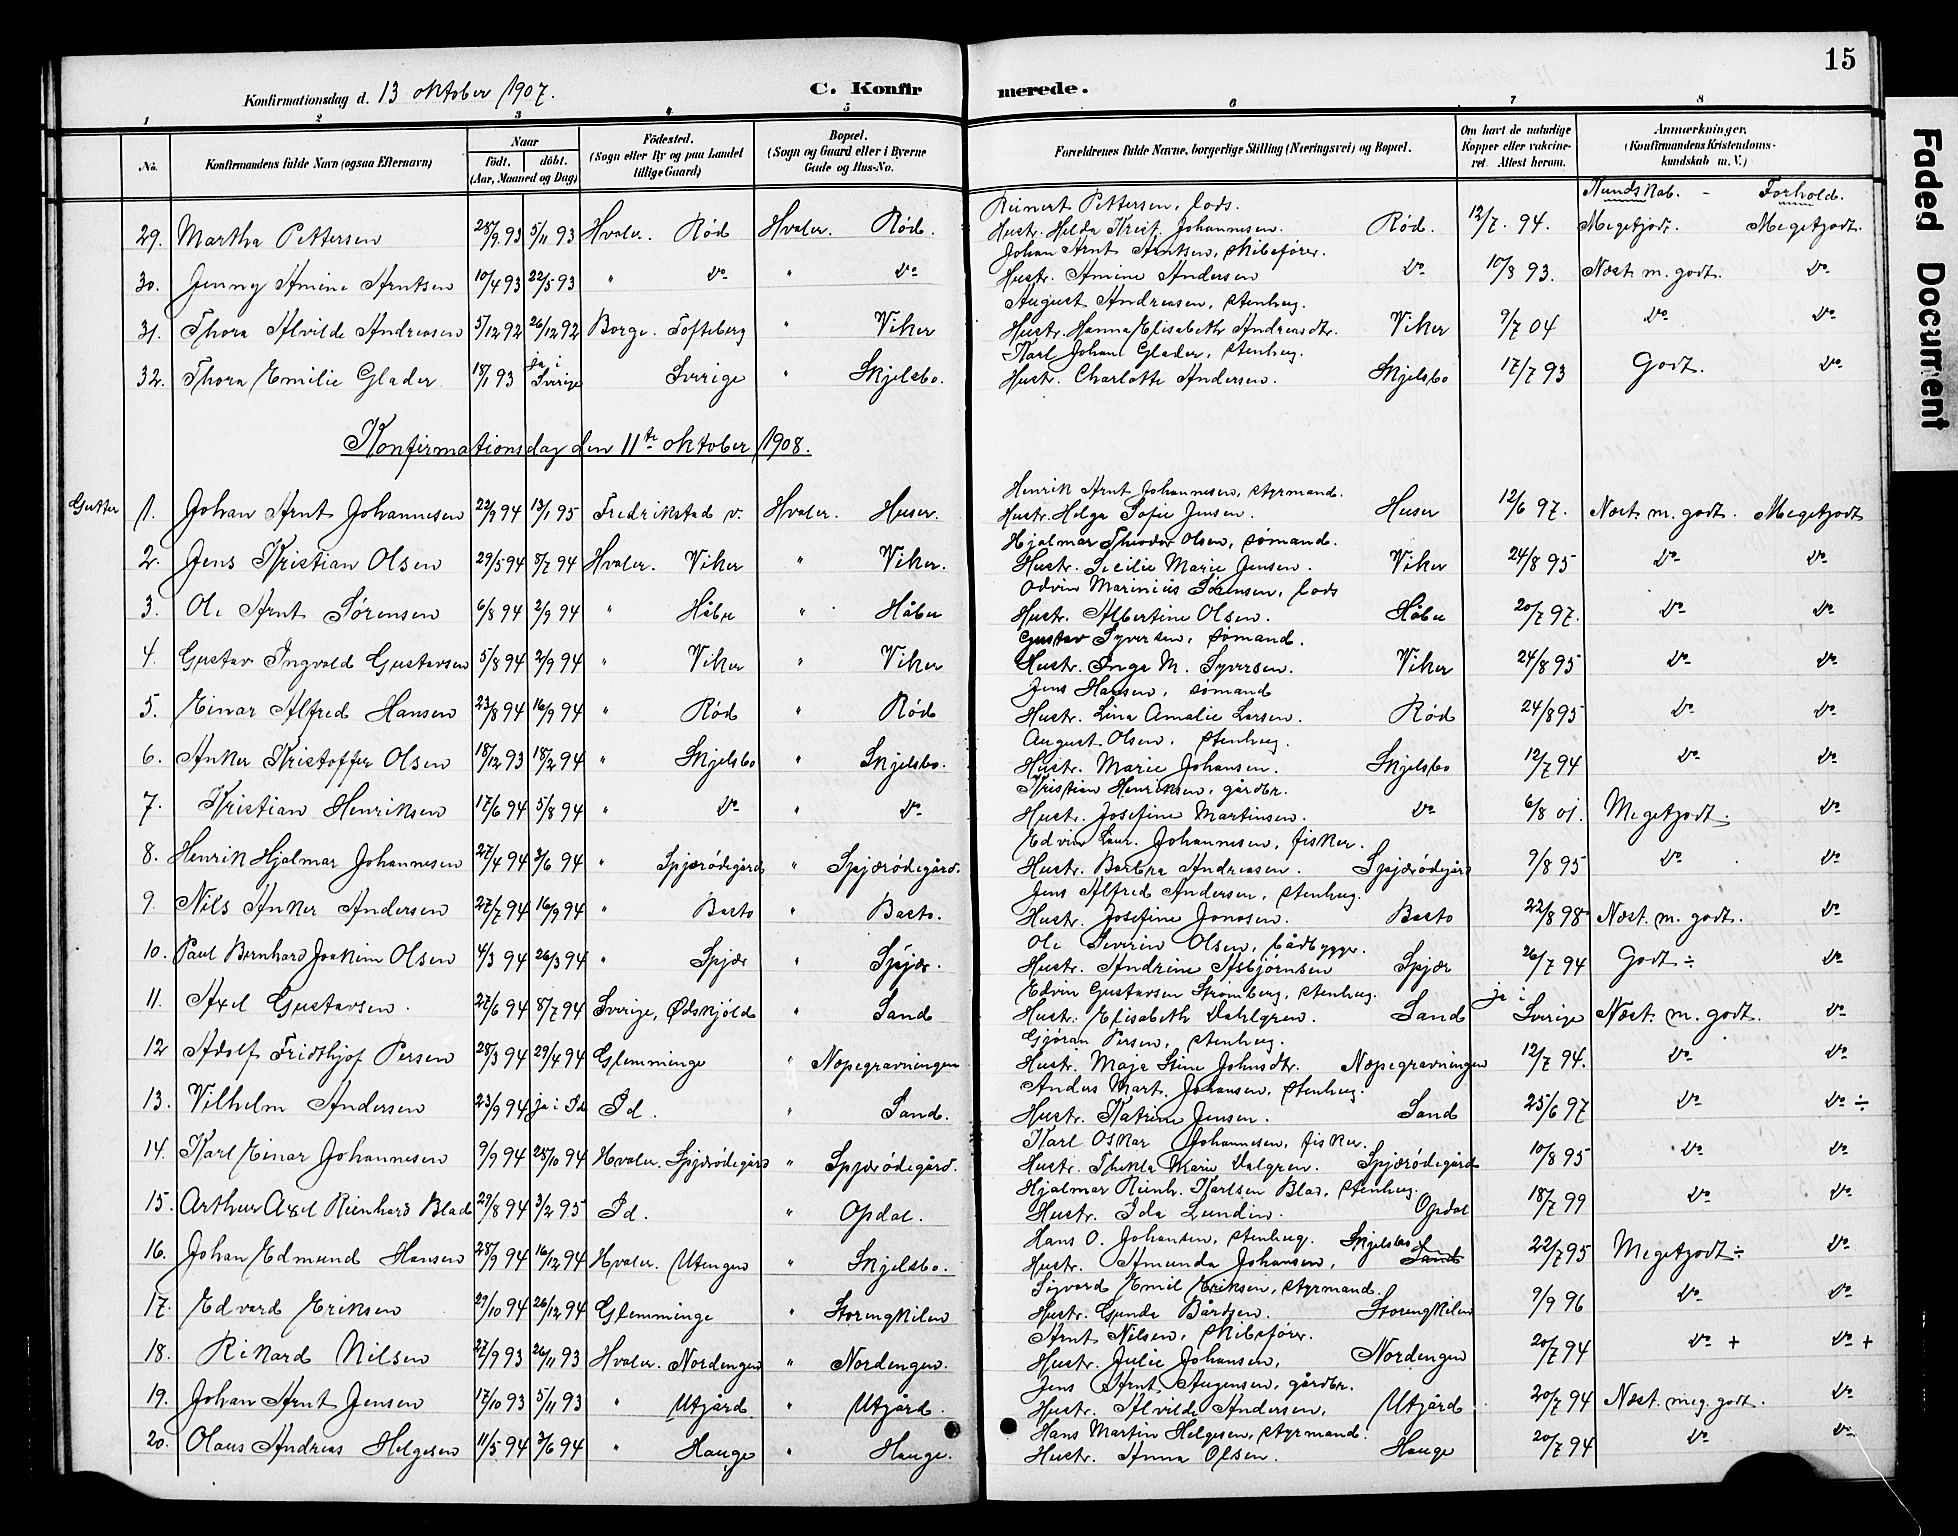 15
Faded Document
Konfirmationsdag d. 13 oktober 1907. C. Konfirmerede.
1 2 3 4 5 6 7 8
No. Konfirmandens fulde Navn (ogsaa Efternavn) Naar født. døbt. (Aar, Maaned og Dag) Fødested. (Sogn eller By og paa Landet tillige Gaard) Bopæl. (Sogn og Gaard eller i Byerne Gade og Hus-No. Forældrenes fulde Navne, borgerlige Stilling (Næringsvei) og Bopæl. Om havt de naturlige Kopper eller vakcineret. Attest herom. Anmærkninger. (Konfirmandens Kristendomskundskab m. V.)
Kundskab. - Forhold.
Reinert Pettersen, lods.
29. Martha Pettersen 28/9 93 5/11 93 Hvaler. Rød Hvaler. Rød. Hustr. Helda Krist. Johannesen. Rød. 12/7. 94. Megetgodt. Megetgodt.
Johan Arnt Arntsen, skibsfører.
30. Jenny Amine Arntsen 10/4 93 22/5 93 " Do " Do Hustr. Amine Andersen Do 10/8 93. Næst m. godt. Do
August Andreasen, stenhug.
31. Thora Alvilde Andreasen 5/12 92 26/12 92 Borge. Tofteberg " Viker Hustr. Hanna Elisabeth Andreasdtr. Viker 9/7 04 Do Do
Karl Johan Glader, stenhug.
32. Thora Emilie Glader 18/1 93 ja i Sverige Sverige " Skjelsbo. Hustr. Charlotte Andersen. Skjelsbo 17/7 93 Godt. Do
Konfirmationsdag den 11te oktober 1908.
Henrik Arnt Johannesen, styrmand.
Gutter 1. Johan Arnt Johannesen 22/9 94 13/1 95 Fredrikstad v. Hvaler. Huser. Hustr. Helga Sofie Jensen. Huser 12/6 97. Næst m. godt. Megetgodt
Hjalmar Theodor Olsen, sømand.
2. Jens Kristian Olsen 29/5 94 8/7 94 Hvaler. Viker " Viker. Hustr. Secilie Marie Jensen. Viker 24/8 95 Do Do
Odvin Marinius Sørensen, lods
3. Ole Arnt Sørensen 6/8 94 2/9 94 " Håbu " Håbu Hustr. Albertine Olsen. Håbu 20/7 97. Do Do
Gustav Syversen, sømand.
4. Gustav Ingvald Gustavsen 5/8 94 2/9 94 " Viker " Viker Hustr. Inga M. Syversen. Viker 24/8 95 Do Do
Jens Hansen, sømand
5. Einar Alfred Hansen 23/8 94 16/9 94 " Rød " Rød Hustr. Lina Amalie Larsen. Rød 24/8 95 Do Do
August Olsen, stenhug.
6. Anker Kristoffer Olsen 18/12 93 18/2 94 " Skjelsbo " Skjelsbo. Hustr. Marie Johansen. Skjelsbo 12/7 94 Do Do
Kristian Henriksen, gårdbr.
7. Kristian Henriksen 17/6 94 5/8 94 " Do " Do Hustr. Josefine Martinsen. Do 6/8 01. Megetgodt. Do
Edvin Laur. Johannesen, fisker.
8. Henrik Hjalmar Johannesen 27/4 94 3/6 94 " Spjærødegård " Spjærødegård. Hustr. Barbra Andreasen. Spjærødegård 9/8 95 Do Do
Jens Alfred Andersen, stenhug.
9. Nils Anker Andersen 27/7 94 16/9 94 " Basto " Basto. Hustr. Josefine Jonasen. Basto 22/8 98 Næst. m. godt. Do
Ole Severin Olsen, bådbygger.
10. Paul Bernhard Joakim Olsen 4/3 94 26/3 94 " Spjær " Spjær. Hustr. Andrine Asbjørnsen Spjær 26/7 94 Godt ÷ Do
Edvin Gustavsen Strømberg, stenhug.
11. Axel Gustavsen. 27/6 94 8/7 94 Sverige, Ødskjöld " Sand Hustr. Elisabeth Dahlgren. Sand ja i Sverige Næst. m. godt. Do
Gjøran Persen, stenhug.
12 Adolf Fridthjof Persen 28/3 94 29/4 94 Glemminge " Næpegravningen Hustr. Maja Stine Johnsdtr. Næpegravningen 12/7 94. Do Do
Andus Mart. Johansen, stenhug.
13. Vilhelm Andersen 23/9 94 ja i Id Id. " Sand. Hustr. Katrine Jensen. Sand 25/6 97 Do Do ÷
Karl Oskar Johannesen, fisker.
14. Karl Einar Johannesen 9/9 94 28/10 94 Hvaler. Spjærødegård " Spjærødegård. Hustr. Thekla Marie Dalgren. Spjærødegård 10/8 95 Do Do
Hjalmar Reinh. Karlsen Blad, stenhug.
15. Arthur Axel Reinhard Blad 29/8 94 3/2 95 Id. " Opdal. Hustr. Ida Lundin. Opdal 18/7 99 Do Do
Hans O. Johansen, stenhug. Skjelsbo
16. Johan Edmund Hansen 28/9 94 16/12 94 Hvaler. Utengen " Skjelsbo. Hustr. Amunda Johansen, Sand 22/7 95 Megetgodt ÷ Do
Sigvard Emil Eriksen, styrmand.
17. Edvard Eriksen 29/10 94 26/12 94 Glemminge " Storengkilen Hustr. Gunda Bårdsen. Storengkilen 9/9 96 Do Do
Arnt Nilsen, skibsfører.
18. Rikard Nilsen 27/9 93 26/11 93 Hvaler. Nordengen " Nordengen. Hustr. Julie Johansen, Nordengen 20/7 94 Do + Do +
Jens Arnt Augensen, gårdbr.
19. Johan Arnt Jensen 17/10 93 5/11 93 " Utgård " Utgård. Hustr. Alvilde Andersen, Utgård 20/7 94 Næst. meg. godt. Do
Hans Martin Helgesen, styrmand.
20. Olaus Andreas Helgesen 11/5 94 3/6 94 " Hauge " Hauge. Hustr. Anna Olsen. Hauge 20/7 94 Do Do